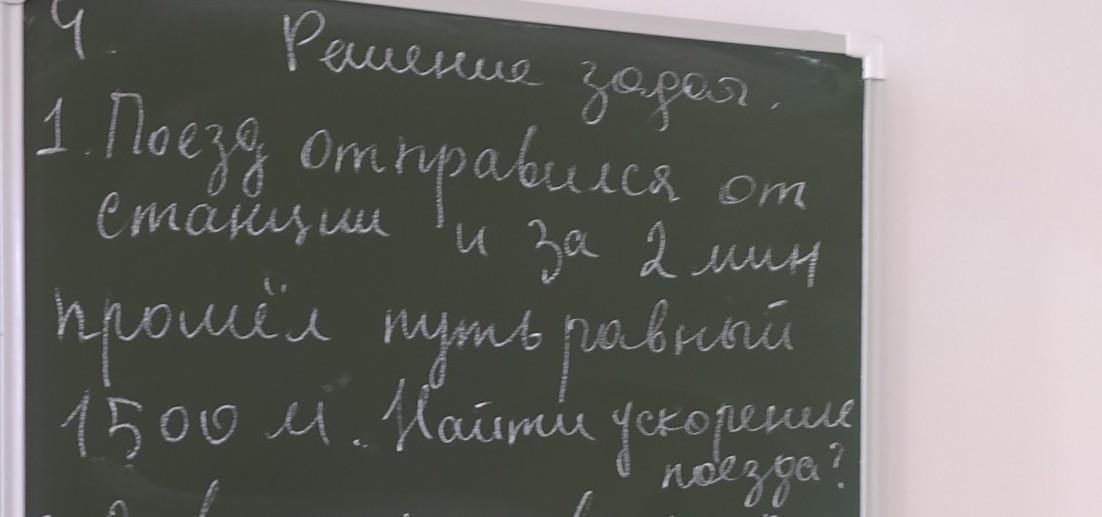 4.
Решение задач.
1. Поезд отправился от
станции и за 2 мин
прошёл путь равный
1500 м. Найти ускорение
поезда?